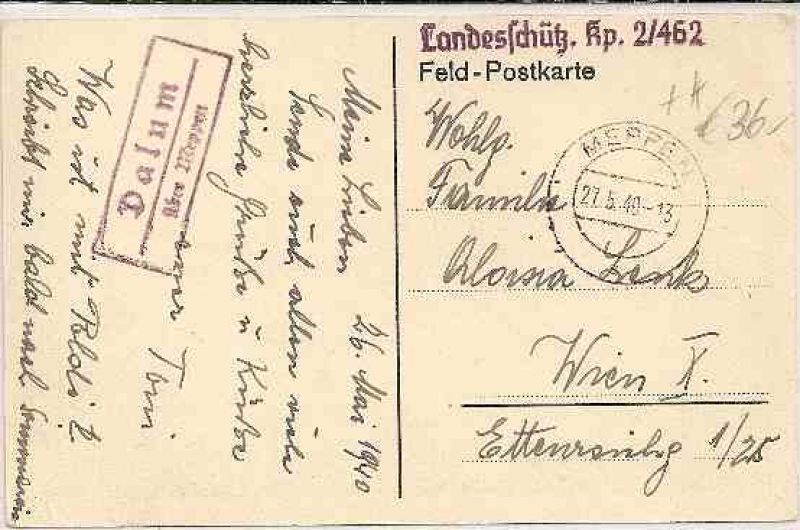 Landesschütz. Kp. 2/462
Feld-Postkarte
MEPPEN
27.5.40-13
Wohlg.
Familie
Aloisia Lenk
Wien X.
1/25
€ 36
Dalum
über Meppen
26. Mai 1940
Meine Lieben
Sende euch allen viele
herzliche Grüße u Küsse
euer Toni
Was ist mit Poldi?
Schreibt mir bald nach